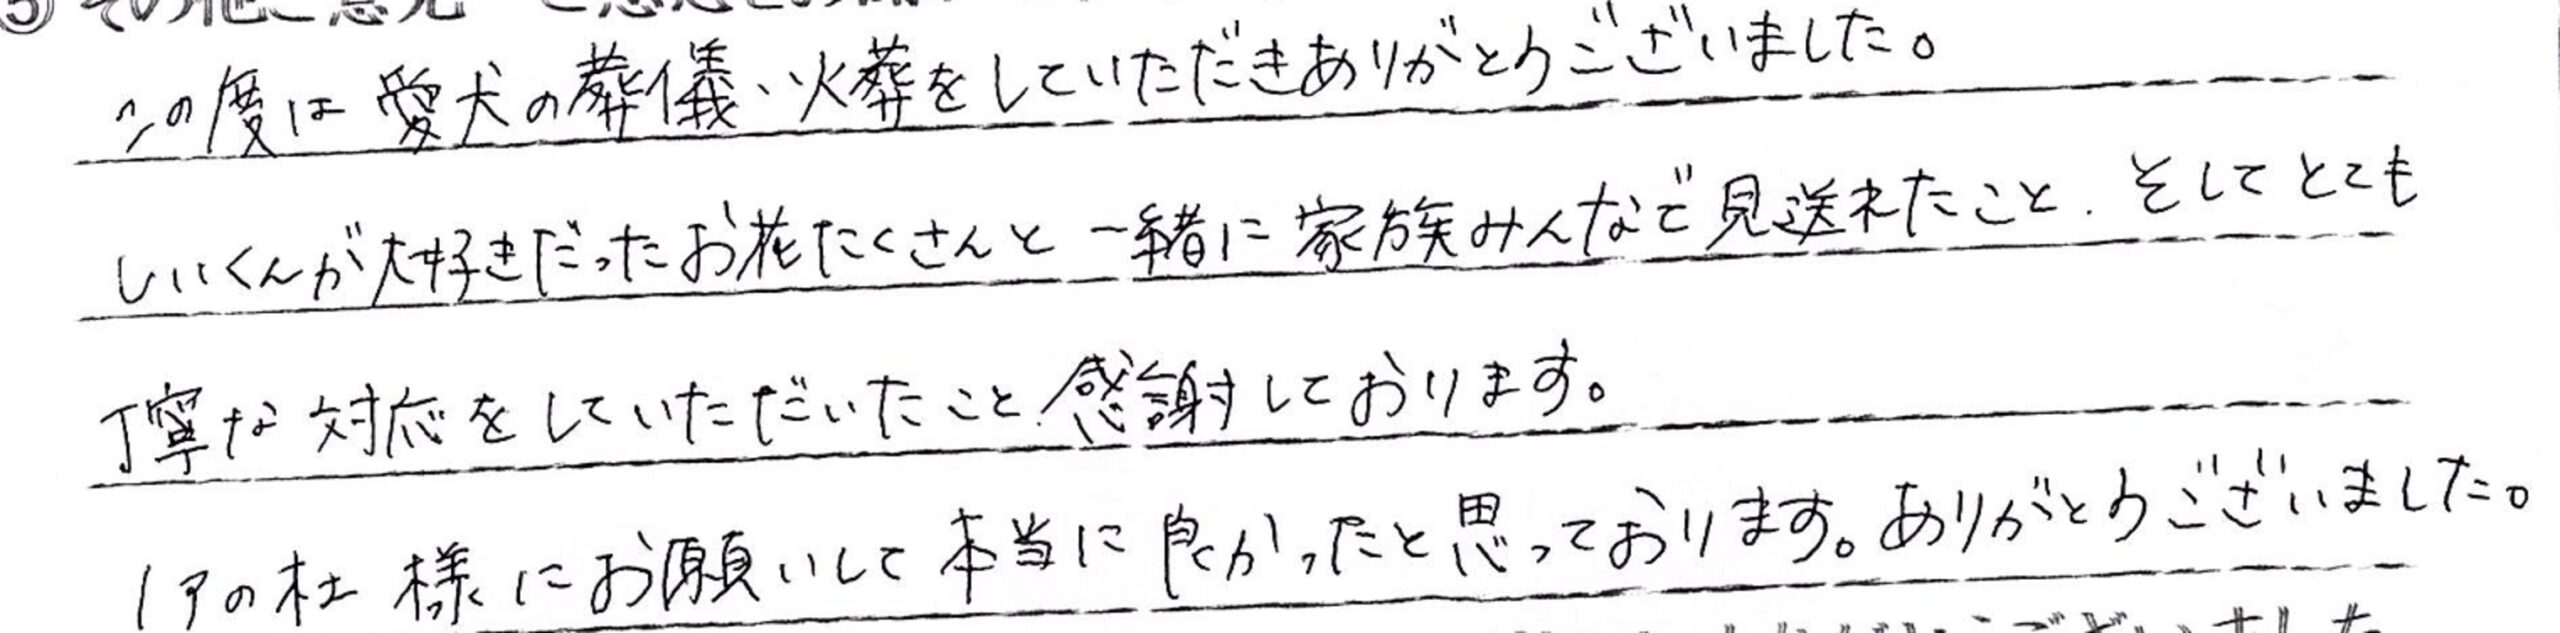 ⑤その他ご意見
この度は愛犬の葬儀、火葬をしていただきありがとうございました。
しいくんが大好きだったお花たくさんと一緒に家族みんなで見送れたこと、そしてとても
丁寧な対応をしていただいたこと、感謝しております。
ノアの杜様にお願いして本当に良かったと思っております。ありがとうございました。
ございました